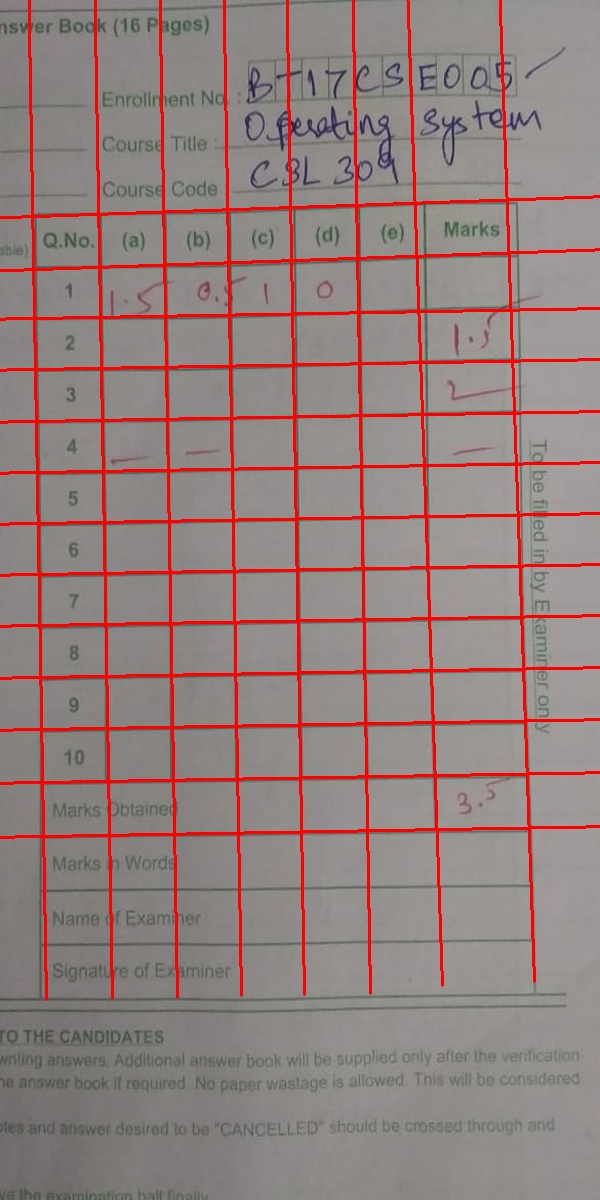 nswer Book (16 Pages)
Enrollment No. : BT17CSE005
Course Title : Operating System
Course Code : CSL 309
able) Q.No. (a) (b) (c) (d) (e) Marks
1 1.5 0.5 1 0
2 1.5
3 2
4 — — —
5
6
7
8
9
10
Marks Obtained 3.5
Marks in Words
Name of Examiner
Signature of Examiner
To be filled in by Examiner only
TO THE CANDIDATES
writing answers. Additional answer book will be supplied only after the verification
he answer book if required. No paper wastage is allowed. This will be considered
otes and answer desired to be "CANCELLED" should be crossed through and
ve the examination hall finally